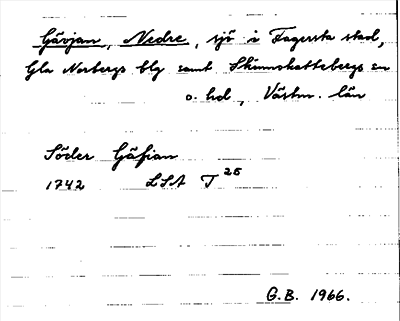 Gävjan, Nedre, sjö i Fagersta stad,
Gla Norbergs blg samt Skinnskattebergs sn
o. hd, Västm. län
Söder Gäfian
1742 LSA T 26
G.B. 1966.